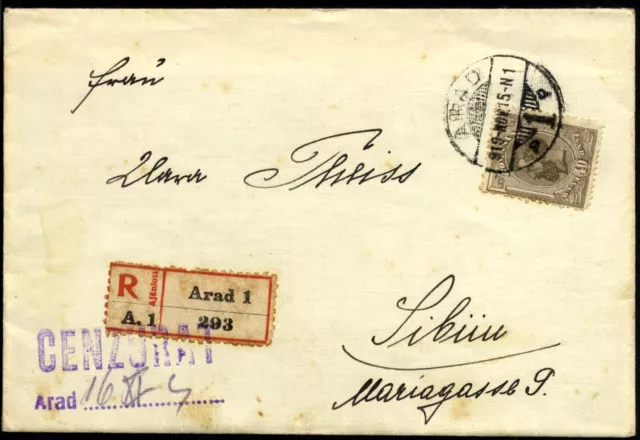 Frau
Clara Theiss
Sibiin
Mariagasse 9.
ARAD
919 NOV 15-N1
1 P
40
R
Ajánlott
Arad 1
A. 1
293
CENZURAT
Arad 16 XI